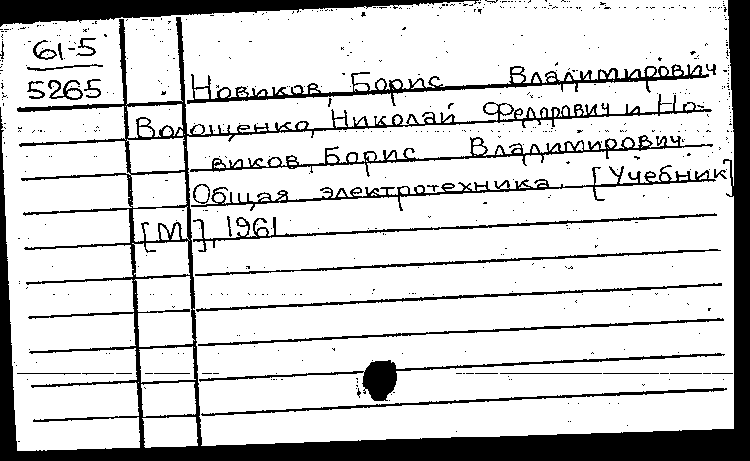 61-5
5265
Новиков, Борис Владимирович
Волощенко, Николай Федорович и Но-
виков, Борис Владимирович
Общая электротехника. [Учебник]
[М], 1961